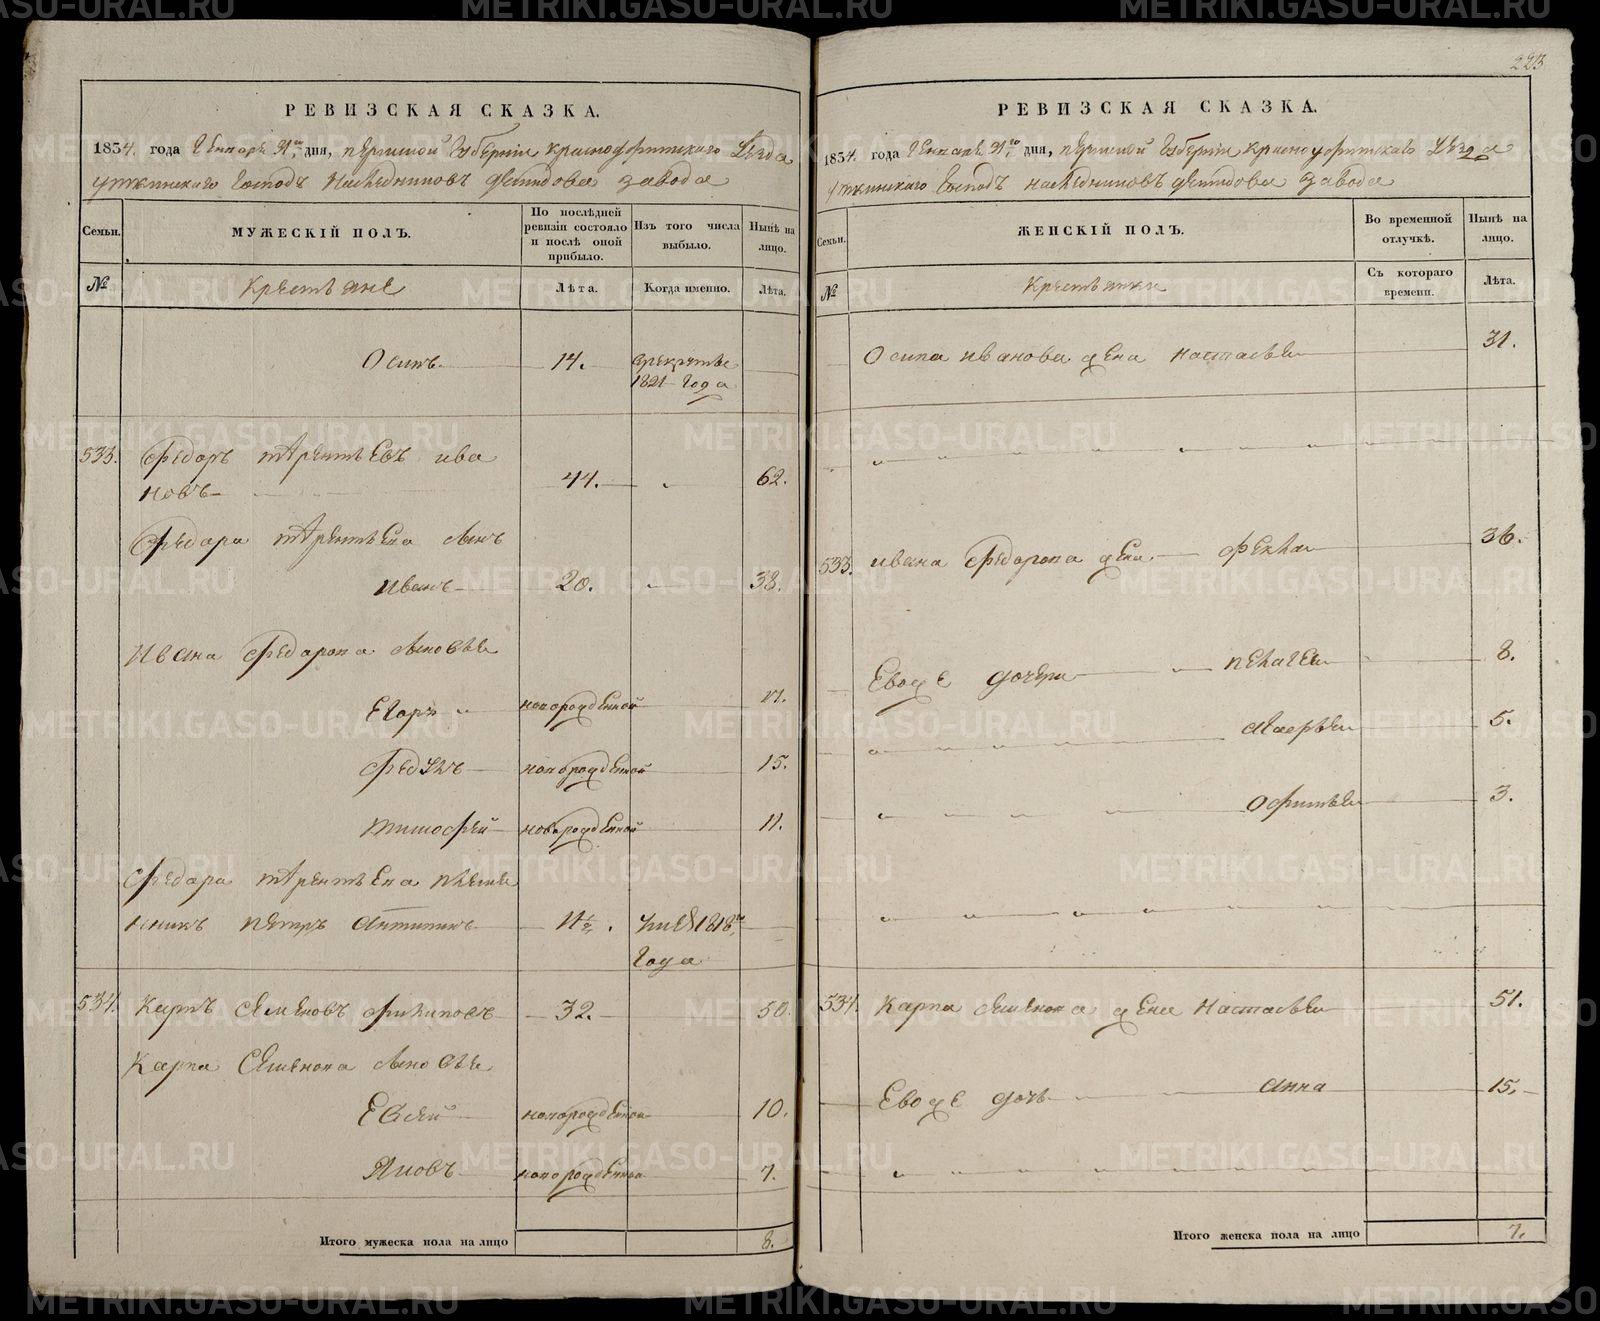 223
РЕВИЗСКАЯ СКАЗКА.
1834. года Генваря дня, пермской Губернии красноуфимскаго Уезда
уткинскаго Господъ Наследниковъ демидова завода
Семьи.
МУЖЕСКІЙ ПОЛЪ.
По послѣдней ревизіи состояло и послѣ оной прибыло.
Изъ того числа выбыло.
Нынѣ на лицо.
№
Крестьяне
Лѣта.
Когда именно.
Лѣта.
Осипъ 14. врекрутъ
1821 года
533. Федоръ терентьевъ ива
новъ 44. 62.
Федора терентьева сынъ
Иванъ 20. 38.
Ивана Федорова сыновья
Егоръ новорожденной 17.
Федулъ новорожденной 15.
тимофей новорожденной 11.
Федора терентьева племя
никъ петръ антипинъ умеѣ 1818го
года
534. Карпъ семеновъ филиповъ 32. 50.
Карпа Семенова сыновья
Евсей новорожденной 10.
Яковъ новорожденной 7.
Итого мужеска пола на лицо 8.
РЕВИЗСКАЯ СКАЗКА.
1834. года Генваря дня, пермской Губернии красноуфимскаго Уезда
уткинскаго Господъ наследниковъ демидова завода
Семьи.
ЖЕНСКІЙ ПОЛЪ.
Во временной отлучкѣ.
Нынѣ на лицо.
№
Крестьянки
Съ котораго времени.
Лѣта.
Осипа иванова жена настасья 31.
533. ивана Федорова жена фекла 36.
Евоже дочери пелагея 8.
Марья 5.
офимья 3.
534. Карпа семенова жена настасья 51.
Евоже дочь анна 15.
Итого женска пола на лицо 7.
METRIKI.GASO-URAL.RU